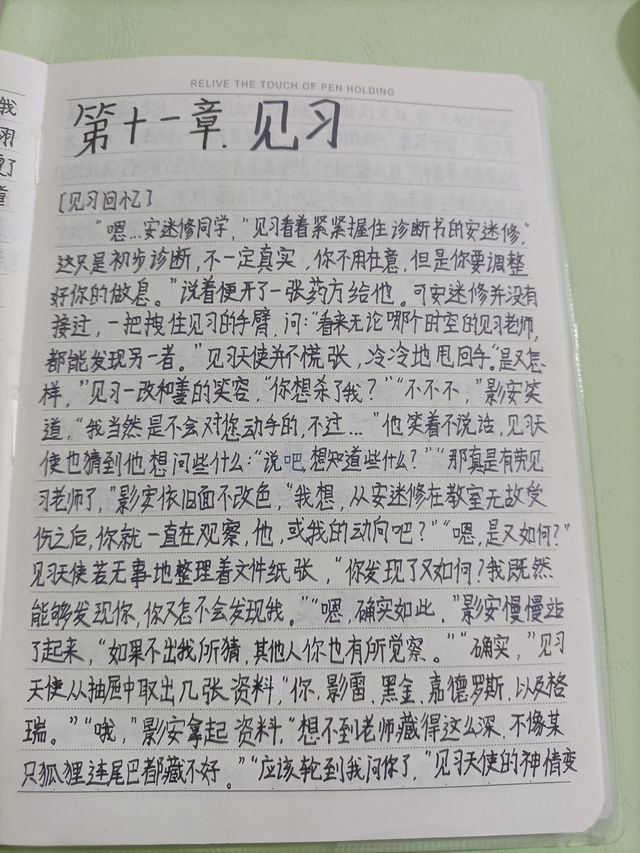 RELIVE THE TOUCH OF PEN HOLDING
第十一章.见习
[见习回忆]
“嗯…安迷修同学,”见习看着紧紧握住诊断书的安迷修,“
这只是初步诊断,不一定真实,你不用在意,但是你要调整
好你的做息。”说着便开了一张药方给他。可安迷修并没有
接过,一把拽住见习的手臂,问:“看来无论哪个时空的见习老师,
都能发现另一者。”见习天使并不慌张,冷冷地甩回手。“是又怎
样,”见习一改和善的笑容,“你想杀了我?”“不不不,”影安笑
道,“我当然是不会对您动手的,不过…”他笑着不说话,见习天
使也猜到他想问些什么:“说吧,想知道些什么?”“那真是有劳见
习老师了,”影安依旧面不改色,“我想,从安迷修在教室无故受
伤之后,你就一直在观察,他,或我的动向吧?”“嗯,是又如何?”
见习天使若无事地整理着文件纸张,“你发现了又如何?我既然
能够发现你,你又怎不会发现我。”“嗯,确实如此,”影安慢慢站
了起来,“如果不出我所猜,其他人你也有所觉察。”“确实,”见习
天使从抽屉中取出几张资料,“你、影雷、黑金、嘉德罗斯、以及格
瑞。”“哦,”影安拿起资料,“想不到老师藏得这么深,不像某
只狐狸连尾巴都藏不好。”“应该轮到我问你了,”见习天使的神情变
我
羽
瘦了
章